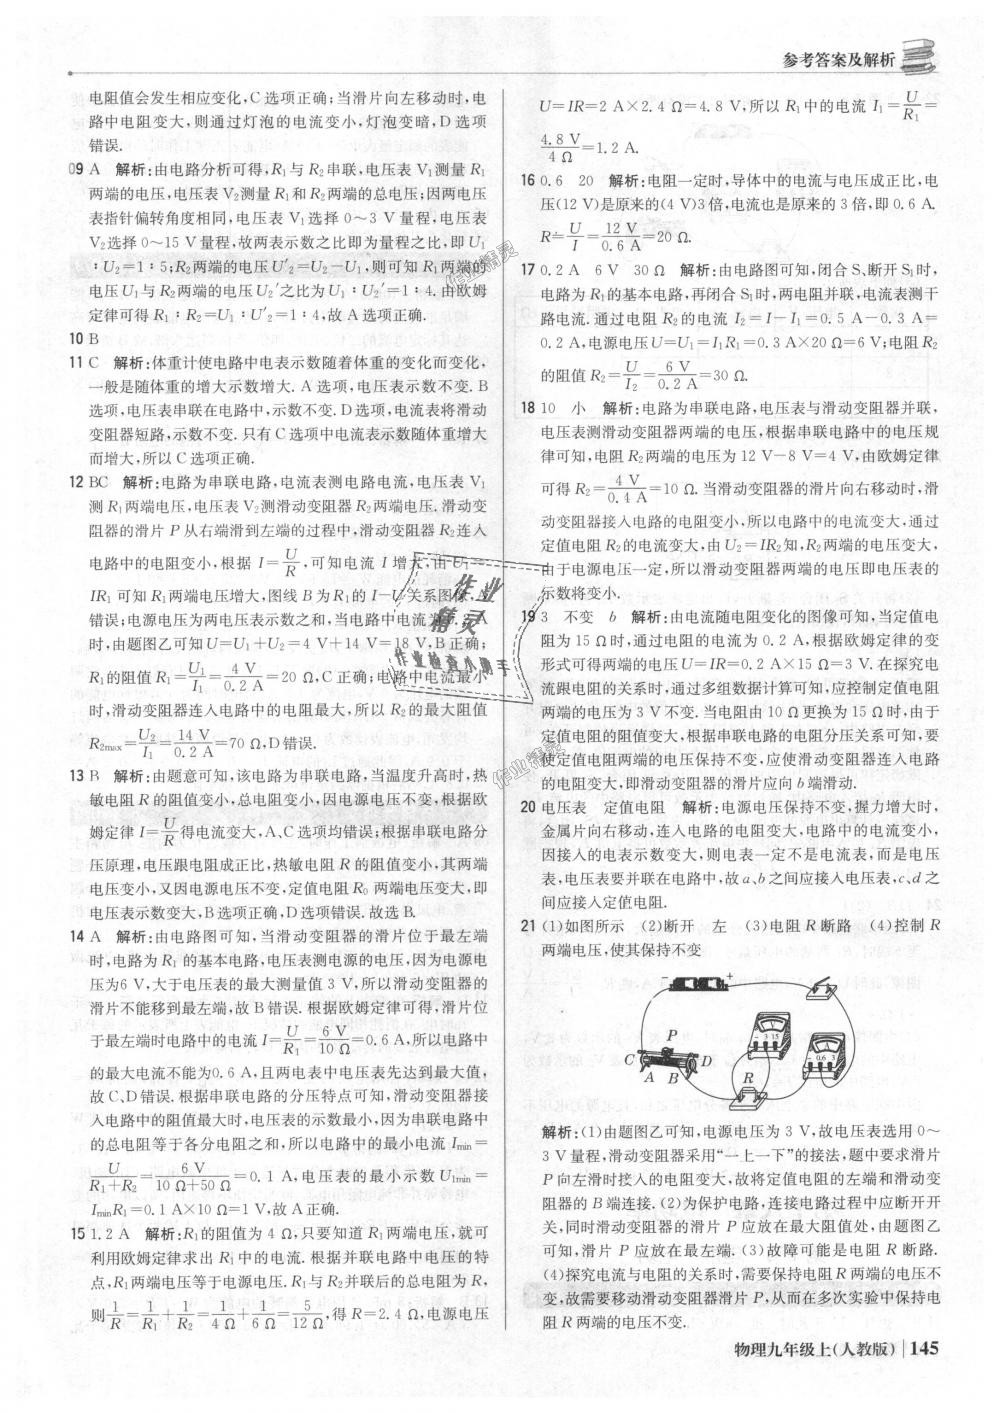 参考答案及解析
电阻值会发生相应变化,C选项正确;当滑片向左移动时,电
路中电阻变大,则通过灯泡的电流变小,灯泡变暗,D选项
错误.
09 A 解析:由电路分析可得,R₁与R₂串联,电压表V₁测量R₁
两端的电压,电压表V₂测量R₁和R₂两端的总电压;因两电压
表指针偏转角度相同,电压表V₁选择0～3 V量程,电压表
V₂选择0～15 V量程,故两表示数之比即为量程之比,即U₁
∶U₂=1∶5;R₂两端的电压U'₂=U₂-U₁,则可知R₁两端的
电压U₁与R₂两端的电压U₂'之比为U₁∶U₂'=1∶4.由欧姆
定律可得R₁∶R₂=U₁∶U'₂=1∶4,故A选项正确.
10 B
11 C 解析:体重计使电路中电表示数随着体重的变化而变化,
一般是随体重的增大示数增大.A选项,电压表示数不变.B
选项,电压表串联在电路中,示数不变.D选项,电流表将滑动
变阻器短路,示数不变.只有C选项中电流表示数随体重增大
而增大,所以C选项正确.
12 BC 解析:电路为串联电路,电流表测电路电流,电压表V₁
测R₁两端电压,电压表V₂测滑动变阻器R₂两端电压.滑动变
阻器的滑片P从右端滑到左端的过程中,滑动变阻器R₂连入
电路中的电阻变小,根据I=U/R,可知电流I增大,由U₁=
IR₁可知R₁两端电压增大,图线B为R₁的I-U关系图像,A
错误;电源电压为两电压表示数之和,当电路中电流为0.2 A
时,由题图乙可知U=U₁+U₂=4 V+14 V=18 V,B正确;
R₁的阻值R₁=U₁/I₁=4 V/0.2 A=20 Ω,C正确;电路中电流最小
时,滑动变阻器连入电路中的电阻最大,所以R₂的最大阻值
R₂max=U₂/I₁=14 V/0.2 A=70 Ω,D错误.
13 B 解析:由题意可知,该电路为串联电路,当温度升高时,热
敏电阻R的阻值变小,总电阻变小,因电源电压不变,根据欧
姆定律I=U/R得电流变大,A、C选项均错误;根据串联电路分
压原理,电压跟电阻成正比,热敏电阻R的阻值变小,其两端
电压变小,又因电源电压不变,定值电阻R₀两端电压变大,即
电压表示数变大,B选项正确,D选项错误.故选B.
14 A 解析:由电路图可知,当滑动变阻器的滑片位于最左端
时,电路为R₁的基本电路,电压表测电源的电压,因为电源电
压为6 V,大于电压表的最大测量值3 V,所以滑动变阻器的
滑片不能移到最左端,故B错误.根据欧姆定律可得,滑片位
于最左端时电路中的电流I=U/R₁=6 V/10 Ω=0.6 A,所以电路中
的最大电流不能为0.6 A,且两电表中电压表先达到最大值,
故C、D错误.根据串联电路的分压特点可知,滑动变阻器接
入电路中的阻值最大时,电压表的示数最小,因为串联电路中
的总电阻等于各分电阻之和,所以电路中的最小电流Imin=
U/(R₁+R₂)=6 V/(10 Ω+50 Ω)=0.1 A,电压表的最小示数U₁min=
IminR₁=0.1 A×10 Ω=1 V,故A正确.
15 1.2 A 解析:R₁的阻值为4 Ω,只要知道R₁两端电压,就可
利用欧姆定律求出R₁中的电流.根据并联电路中电压的特
点,R₁两端电压等于电源电压.R₁与R₂并联后的总电阻为R,
则1/R=1/R₁+1/R₂=1/4 Ω+1/6 Ω=5/12 Ω,得R=2.4 Ω,电源电压
U=IR=2 A×2.4 Ω=4.8 V,所以R₁中的电流I₁=U/R₁=
4.8 V/4 Ω=1.2 A.
16 0.6 20 解析:电阻一定时,导体中的电流与电压成正比,电
压(12 V)是原来的(4 V)3倍,电流也是原来的3倍,即0.6 A.
R=U/I=12 V/0.6 A=20 Ω.
17 0.2 A 6 V 30 Ω 解析:由电路图可知,闭合S、断开S₁时,
电路为R₁的基本电路,再闭合S₁时,两电阻并联,电流表测干
路电流.通过电阻R₂的电流I₂=I-I₁=0.5 A-0.3 A=
0.2 A,电源电压U=U₁=I₁R₁=0.3 A×20 Ω=6 V;电阻R₂
的阻值R₂=U/I₂=6 V/0.2 A=30 Ω.
18 10 小 解析:电路为串联电路,电压表与滑动变阻器并联,
电压表测滑动变阻器两端的电压,根据串联电路中的电压规
律可知,电阻R₂两端的电压为12 V-8 V=4 V,由欧姆定律
可得R₂=4 V/0.4 A=10 Ω.当滑动变阻器的滑片向右移动时,滑
动变阻器接入电路的电阻变小,所以电路中的电流变大,通过
定值电阻R₂的电流变大,由U₂=IR₂知,R₂两端的电压变大,
由于电源电压一定,所以滑动变阻器两端的电压即电压表的
示数将变小.
19 3 不变 b 解析:由电流随电阻变化的图像可知,当定值电
阻为15 Ω时,通过电阻的电流为0.2 A,根据欧姆定律的变
形式可得两端的电压U=IR=0.2 A×15 Ω=3 V.在探究电
流跟电阻的关系时,通过多组数据计算可知,应控制定值电阻
两端的电压为3 V不变.当电阻由10 Ω更换为15 Ω时,由于
定值电阻的阻值变大,根据串联电阻的分压关系可知,要
使定值电阻两端的电压保持不变,应使滑动变阻器连入电路
的电阻变大,即滑动变阻器的滑片应向b端滑动.
20 电压表 定值电阻 解析:电源电压保持不变,握力增大时,
金属片向右移动,连入电路的电阻变大,电路中的电流变小,
因接入的电表示数变大,则电表一定不是电流表,而是电压
表,电压表要并联在电路中,故a、b之间应接入电压表,c、d之
间应接入定值电阻.
21 (1)如图所示 (2)断开 左 (3)电阻R断路 (4)控制R
两端电压,使其保持不变
- +
P
C D
A B
R
- 3 15
- 0.6 3
解析:(1)由题图乙可知,电源电压为3 V,故电压表选用0～
3 V量程,滑动变阻器采用“一上一下”的接法,题中要求滑片
P向左滑时接入的电阻变大,故将定值电阻的左端和滑动变
阻器的B端连接.(2)为保护电路,连接电路过程中应断开开
关,同时滑动变阻器的滑片P应放在最大阻值处,由题图乙
可知,滑片P应放在最左端.(3)故障可能是电阻R断路.
(4)探究电流与电阻的关系时,需要保持电阻R两端的电压不
变,故需要移动滑动变阻器滑片P,从而在多次实验中保持电
阻R两端的电压不变.
作业精灵
作业
精灵
作业检查小助手
作业精灵
物理九年级上(人教版) 145